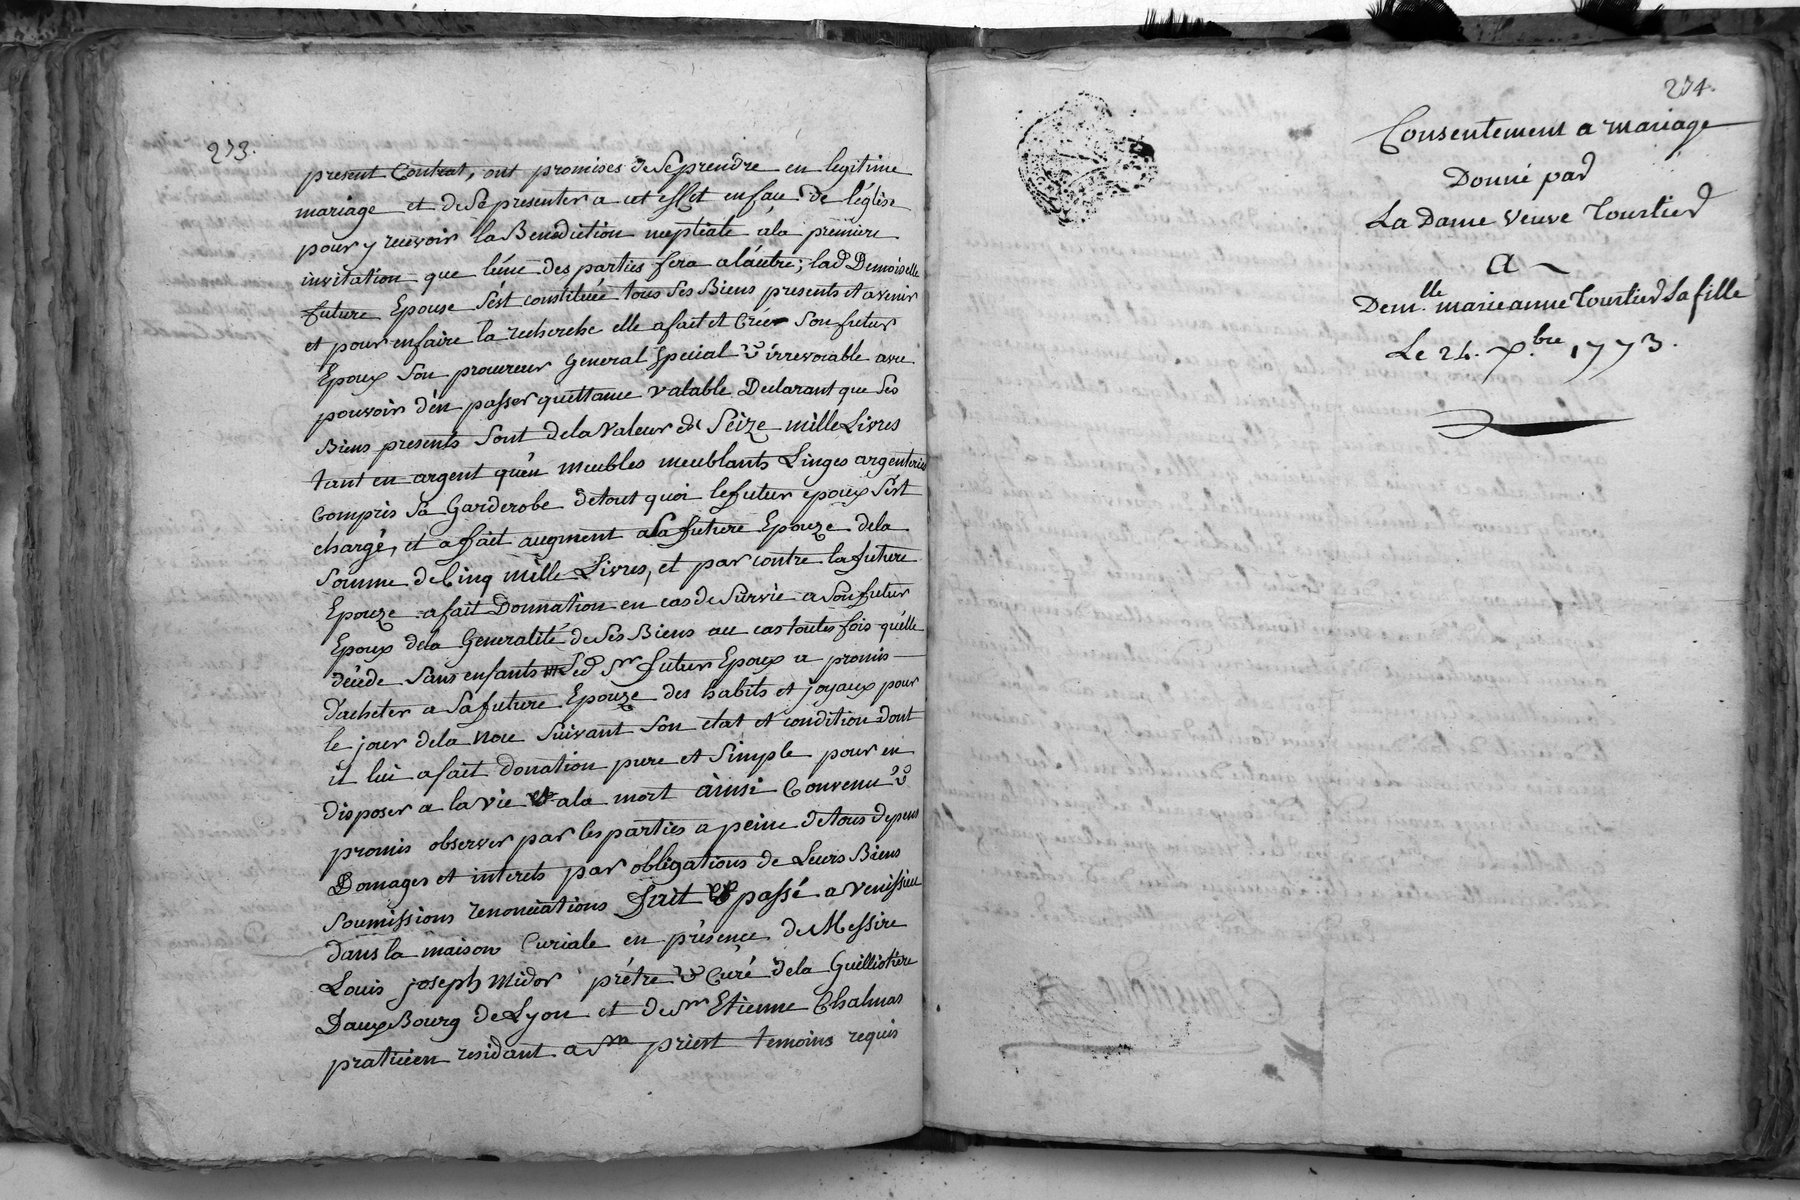 273.
present Contrat, ont promises de Se prendre en legitime
mariage et de Se presenter a cet effet en face de l'église
pour y recevoir la Benediction nuptiale à la premiere
invitation que l'une des parties fera a l'autre; lad. Demoiselle
future Epouse S'est constituée tous Ses Biens presents et avenir
et pour en faire la recherche elle a fait et Créé Son futur
Epoux Son procureur General Special & irrevocable avec
pouvoir d'en passer quittance valable Declarant que Ses
Biens presents Sont de la Valeur de Seize mille Livres
tant en argent qu'en meubles meublants Linges argenteries
Compris Sa Garderobe de tout quoi le futur epoux S'est
chargé, et a fait augment a la future Epouze de la
Somme de Cinq mille Livres, et par contre la future
Epouze a fait Donnation en cas de Survie a Son futur
Epoux de la Generalité de Ses Biens au cas toutes fois qu'elle
décéde Sans enfants Led. Sr. futur Epoux a promis
d'acheter a Sa future Epouze des habits et joyaux pour
le jour de la noce Suivant Son etat et condition dont
il lui a fait donation pure et Simple pour en
disposer a la vie et a la mort ainsi Convenu &
promis observer par les parties a peine de tous depens
Domages et interets par obligations de Leurs Biens
Soumissions renonciations fait & passé a Venissieu
dans la maison Curiale en présence de Messire
Louis joseph Midor prétre & Curé de la Guilliotiére
Faux Bourg de Lyon et de Sr. Etienne Chalmas
praticien residant a St. priest temoins requis
274.
Consentement a mariage
Donné par
La Dame Veuve Tourtier
A
Demlle. marie anne Tourtier Sa fille
Le 24. Xbre. 1773.